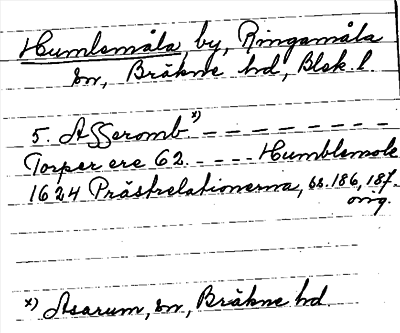 Humlsmåla, by, Ringamåla
sn, Bräkne hd, Blek. l.
5. Asseromb.*) - - - - - - - -
Torper ere 62. - - - - Humblemole
1624 Prästrelationerna, ss. 186, 187.
orig.
x) Asarum, sn, Bräkne hd